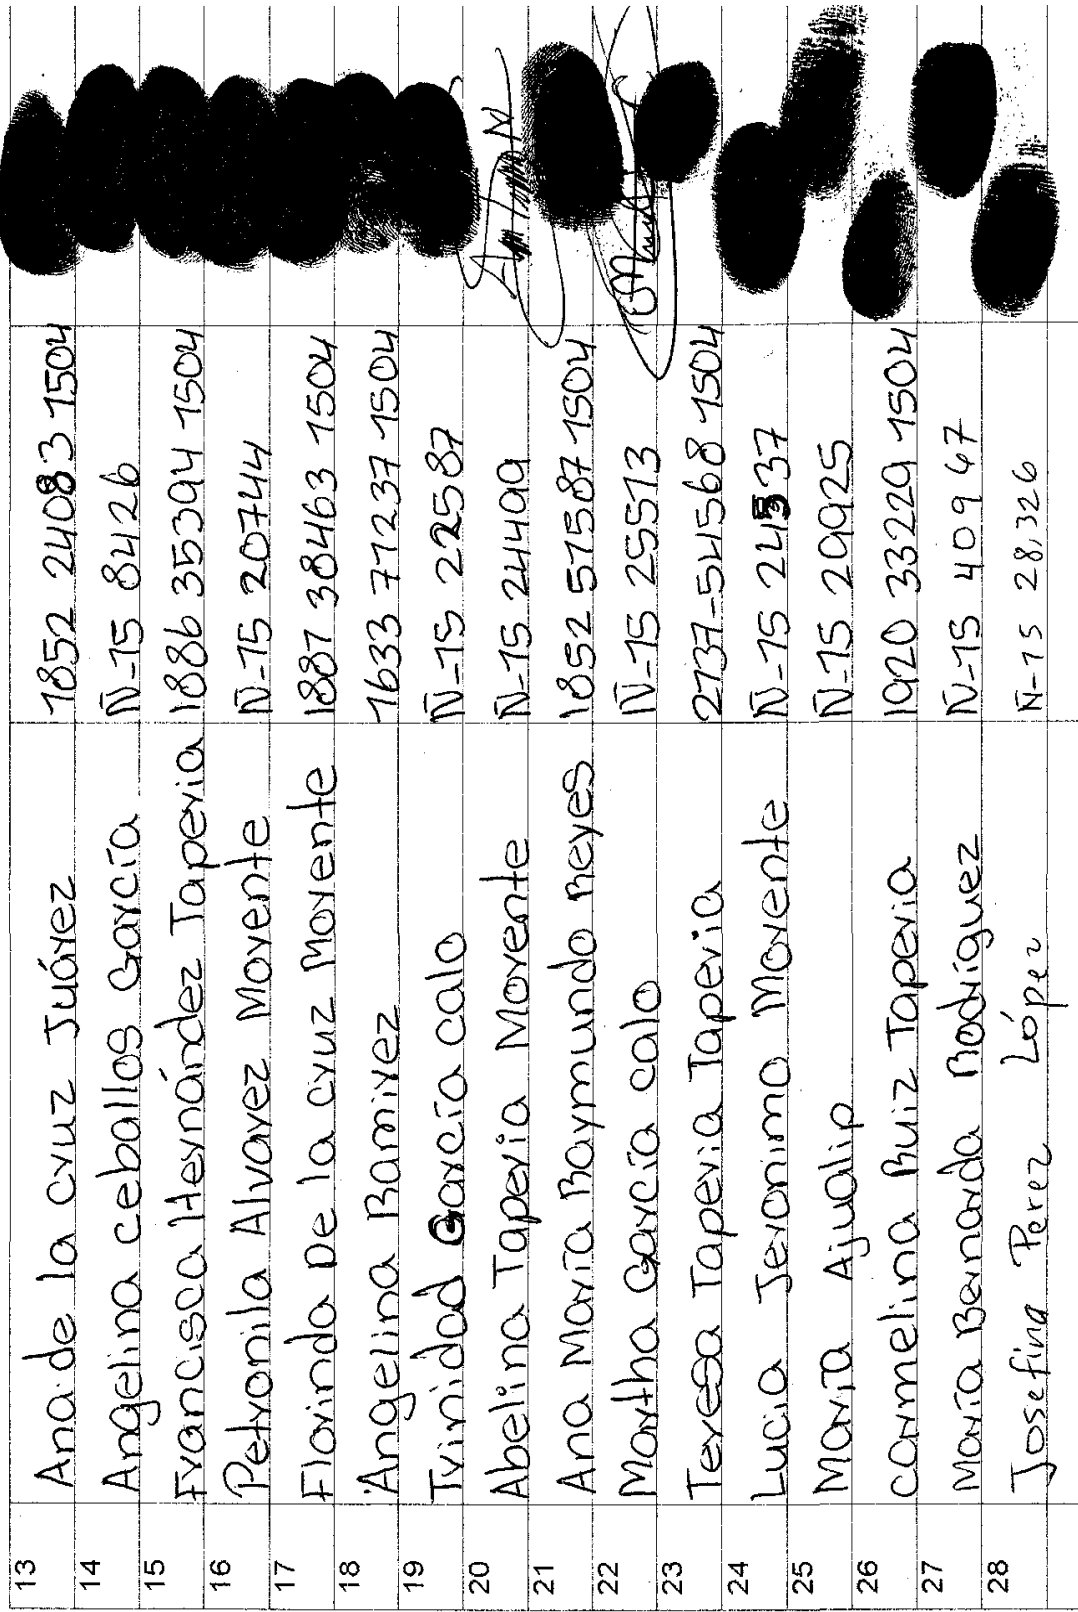 13 Ana de la cruz Juárez 1852 24083 1504
14 Angelina ceballos García N-15 8426
15 Francisca Hernández Taperia 1886 35394 1504
16 Petronila Alvarez Morente N-15 20744
17 Florinda De la cruz Morente 1887 38463 1504
18 Angelina Ramirez 1633 71237 1504
19 Trinidad García calo N-15 22587
20 Abelina Taperia Morente N-15 24499
21 Ana María Raymundo Reyes 1852 57587 1504
22 Martha García calo N-15 25513
23 Teresa Taperia Taperia 2737-54568 1504
24 Lucia Jeronimo Morente N-15 24537
25 Maria Ajualip N-15 29925
26 carmelina Ruiz Taperia 1920 33229 1504
27 María Bernarda Rodríguez N-15 40967
28 Josefina Perez López N-15 28,326